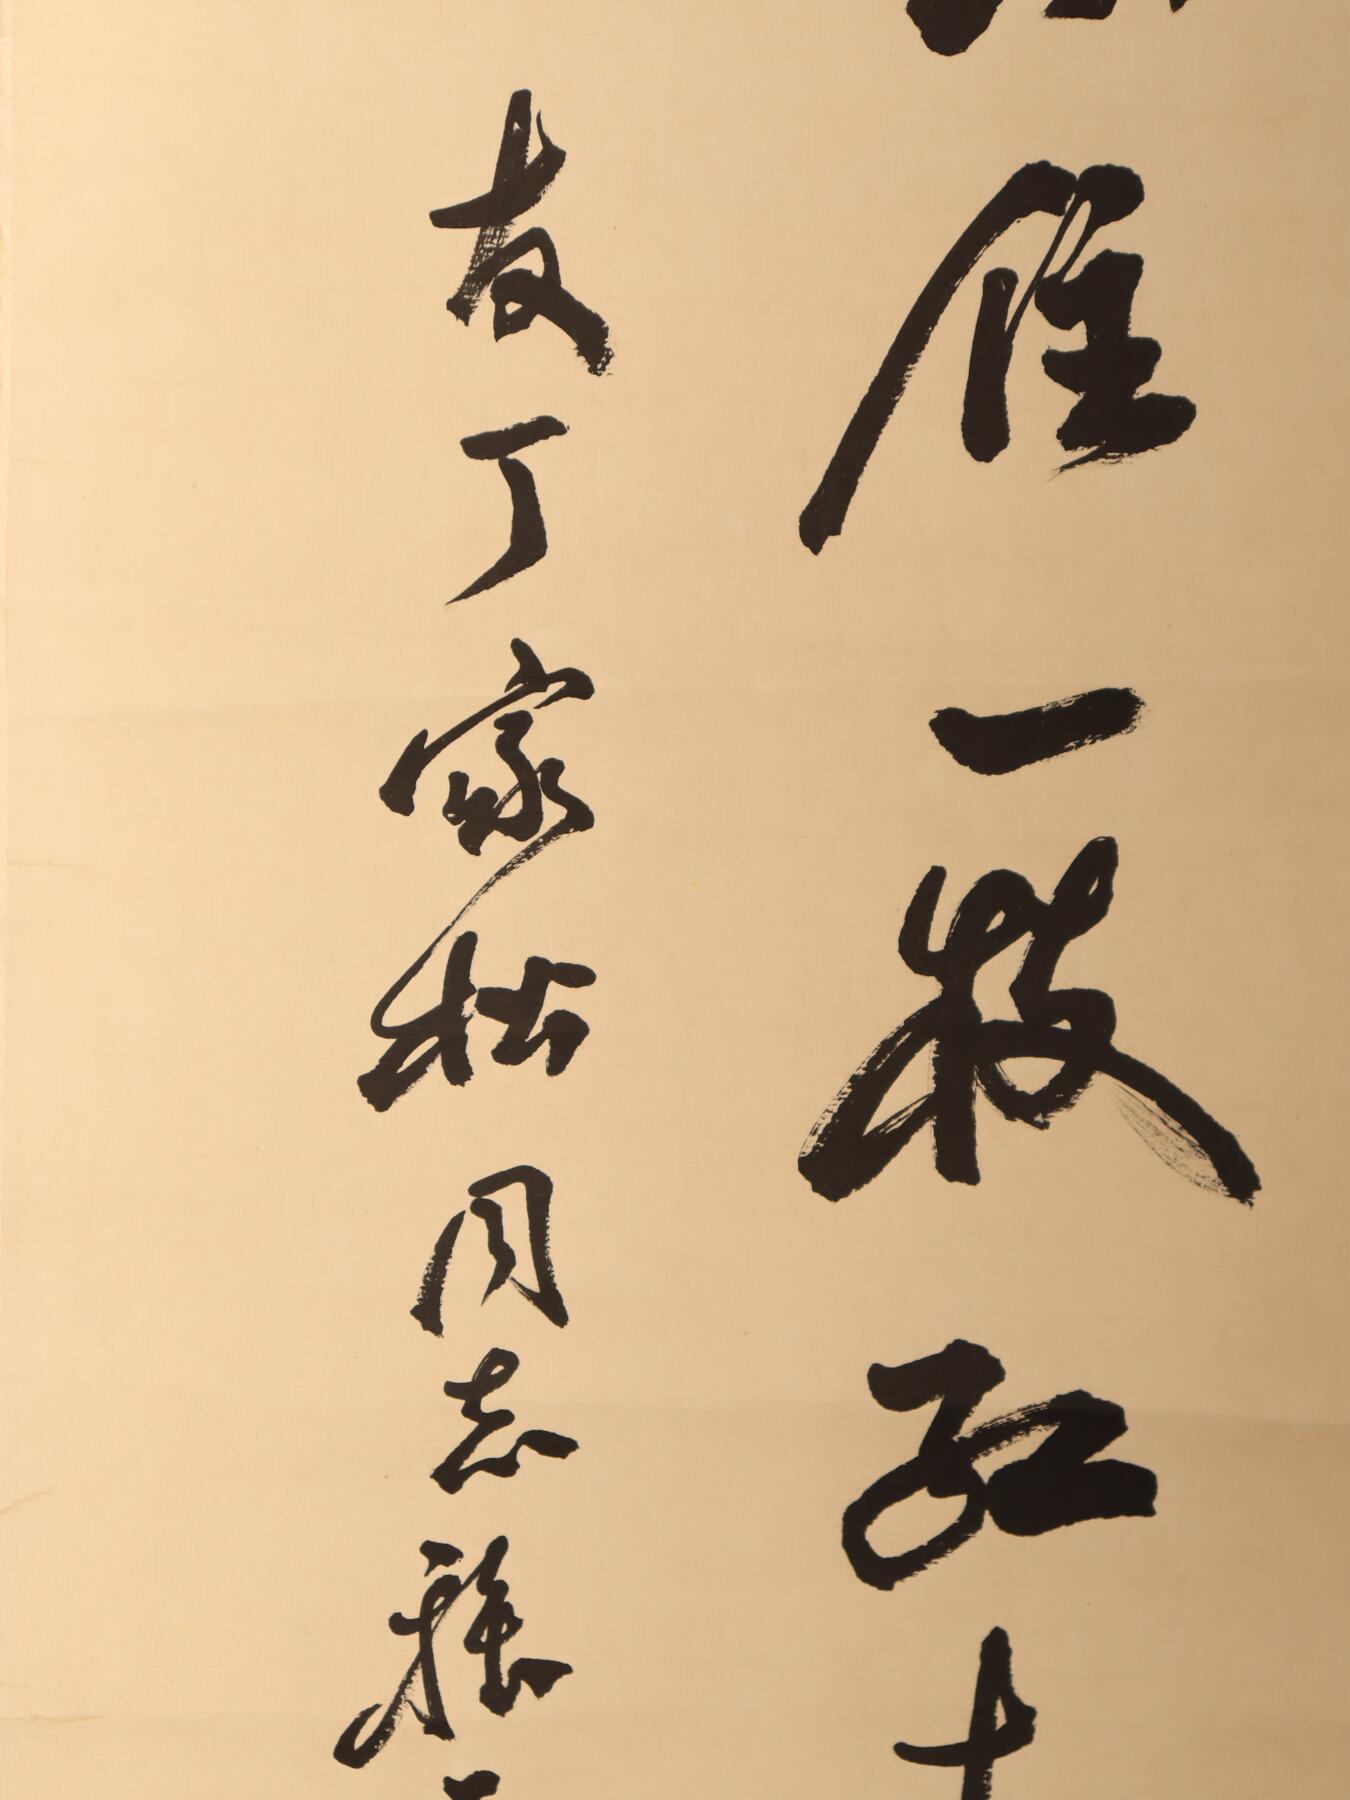 一枝红
友丁家松同志雅